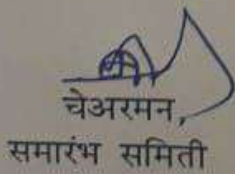 चेअरमन,
समारंभ समिती